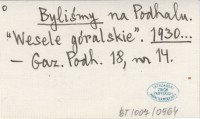 Byliśmy na Podhalu.
"Wesele góralskie". 1930...
— Gaz. Podh. 18, nr 14.
BT/007/0564